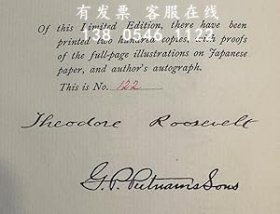 有发票 客服在线
Of this Limited Edition, there have been
printed two hundred copies, with proofs
of the full-page illustrations on Japanese
paper, and author's autograph.
This is No. 122
Theodore Roosevelt
G. P. Putnam's Sons